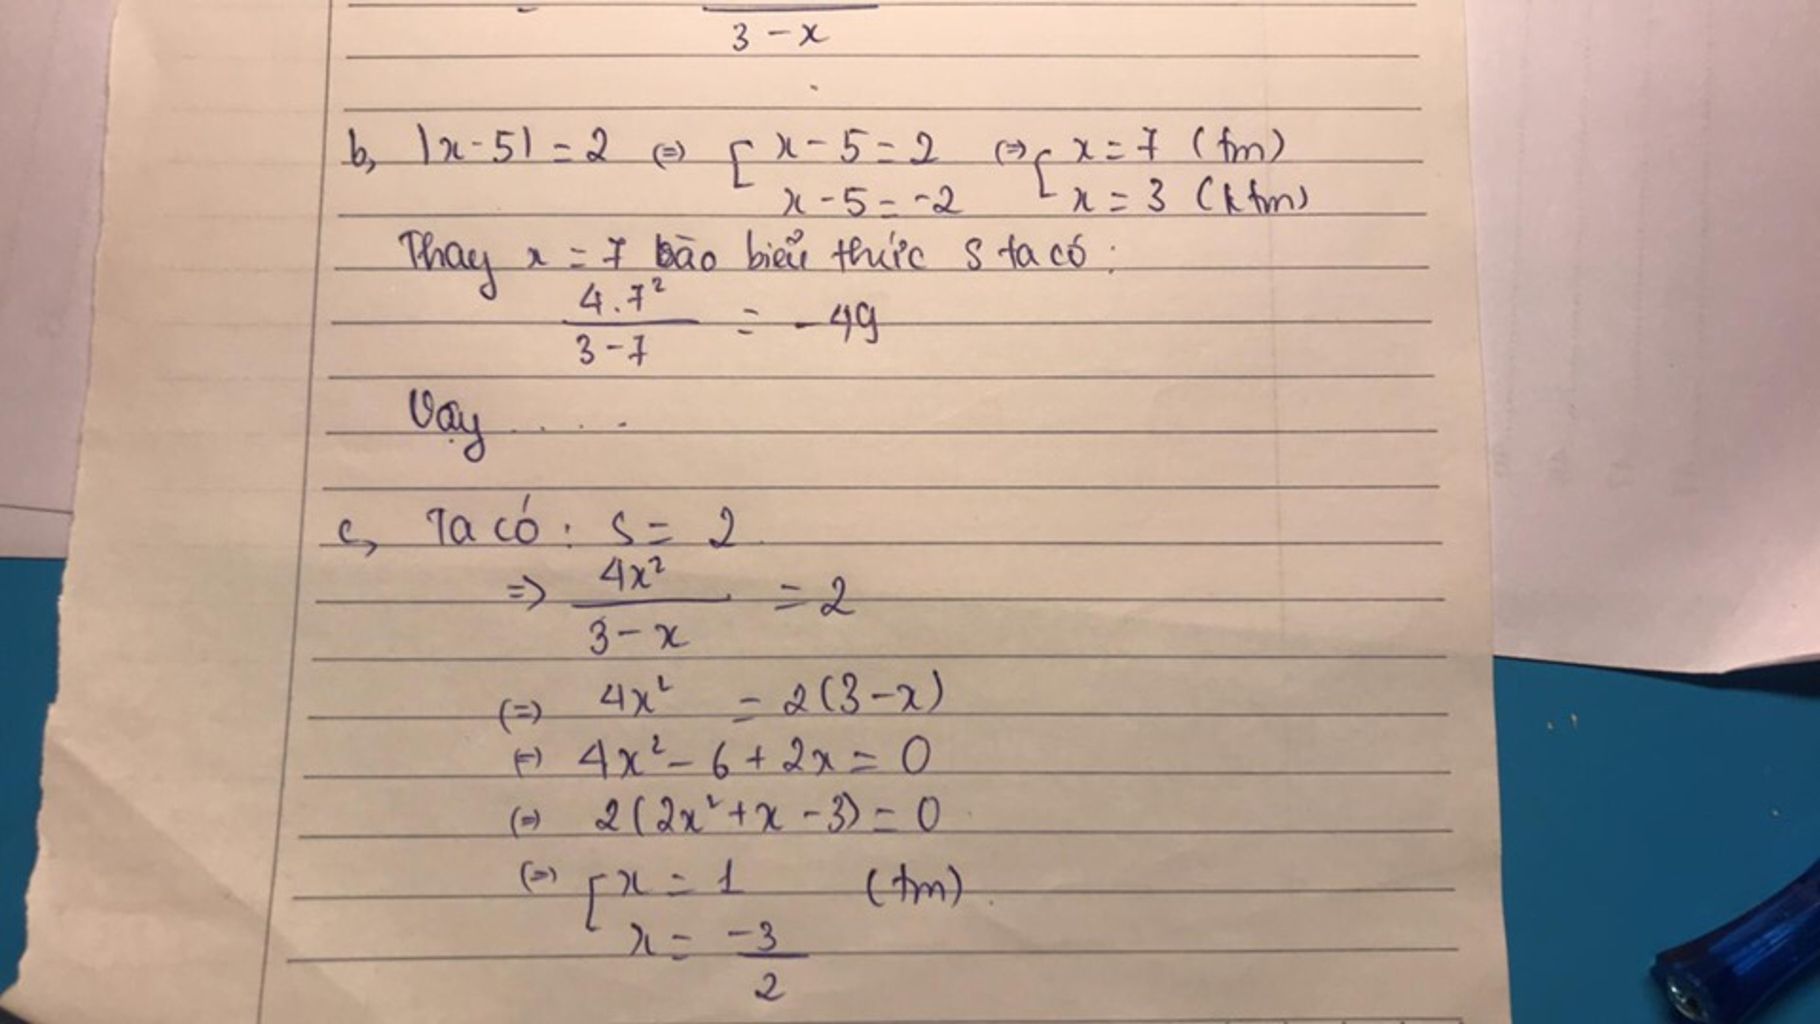 3 - x
b, |x-5| = 2 (=) [ x - 5 = 2 (=) [ x = 7 (tm)
x - 5 = -2 x = 3 (ktm)
Thay x = 7 bào biểu thức S ta có :
4.7²
/ 3-7 = -49
Vậy .....
c, Ta có : S = 2
=> 4x² / 3 - x = 2
(=) 4x² = 2(3-x)
(=) 4x² - 6 + 2x = 0
(=) 2(2x² + x - 3) = 0
(=) [ x = 1 (tm).
x = -3 / 2